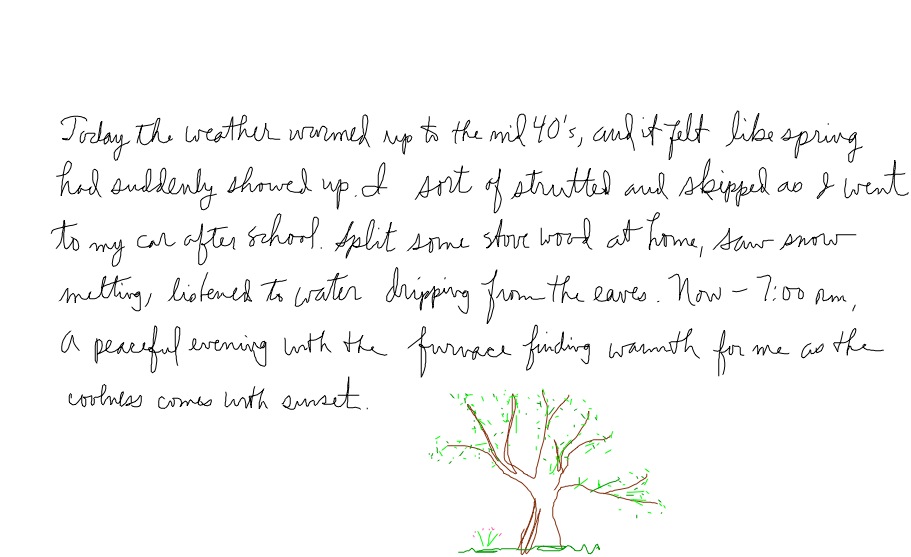 Today the weather warmed up to the mid 40's, and it felt like spring
had suddenly showed up. I sort of strutted and skipped as I went
to my car after school. Split some stove wood at home, saw snow
melting, listened to water dripping from the eaves. Now – 7:00 pm,
A peaceful evening with the furnace finding warmth for me as the
coolness comes with sunset.